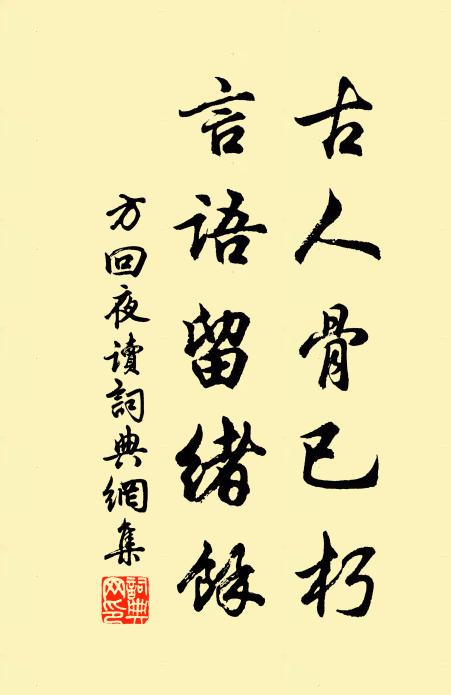 古人骨已朽
言語留緒餘
方回夜讀詞典網集
詞典网印